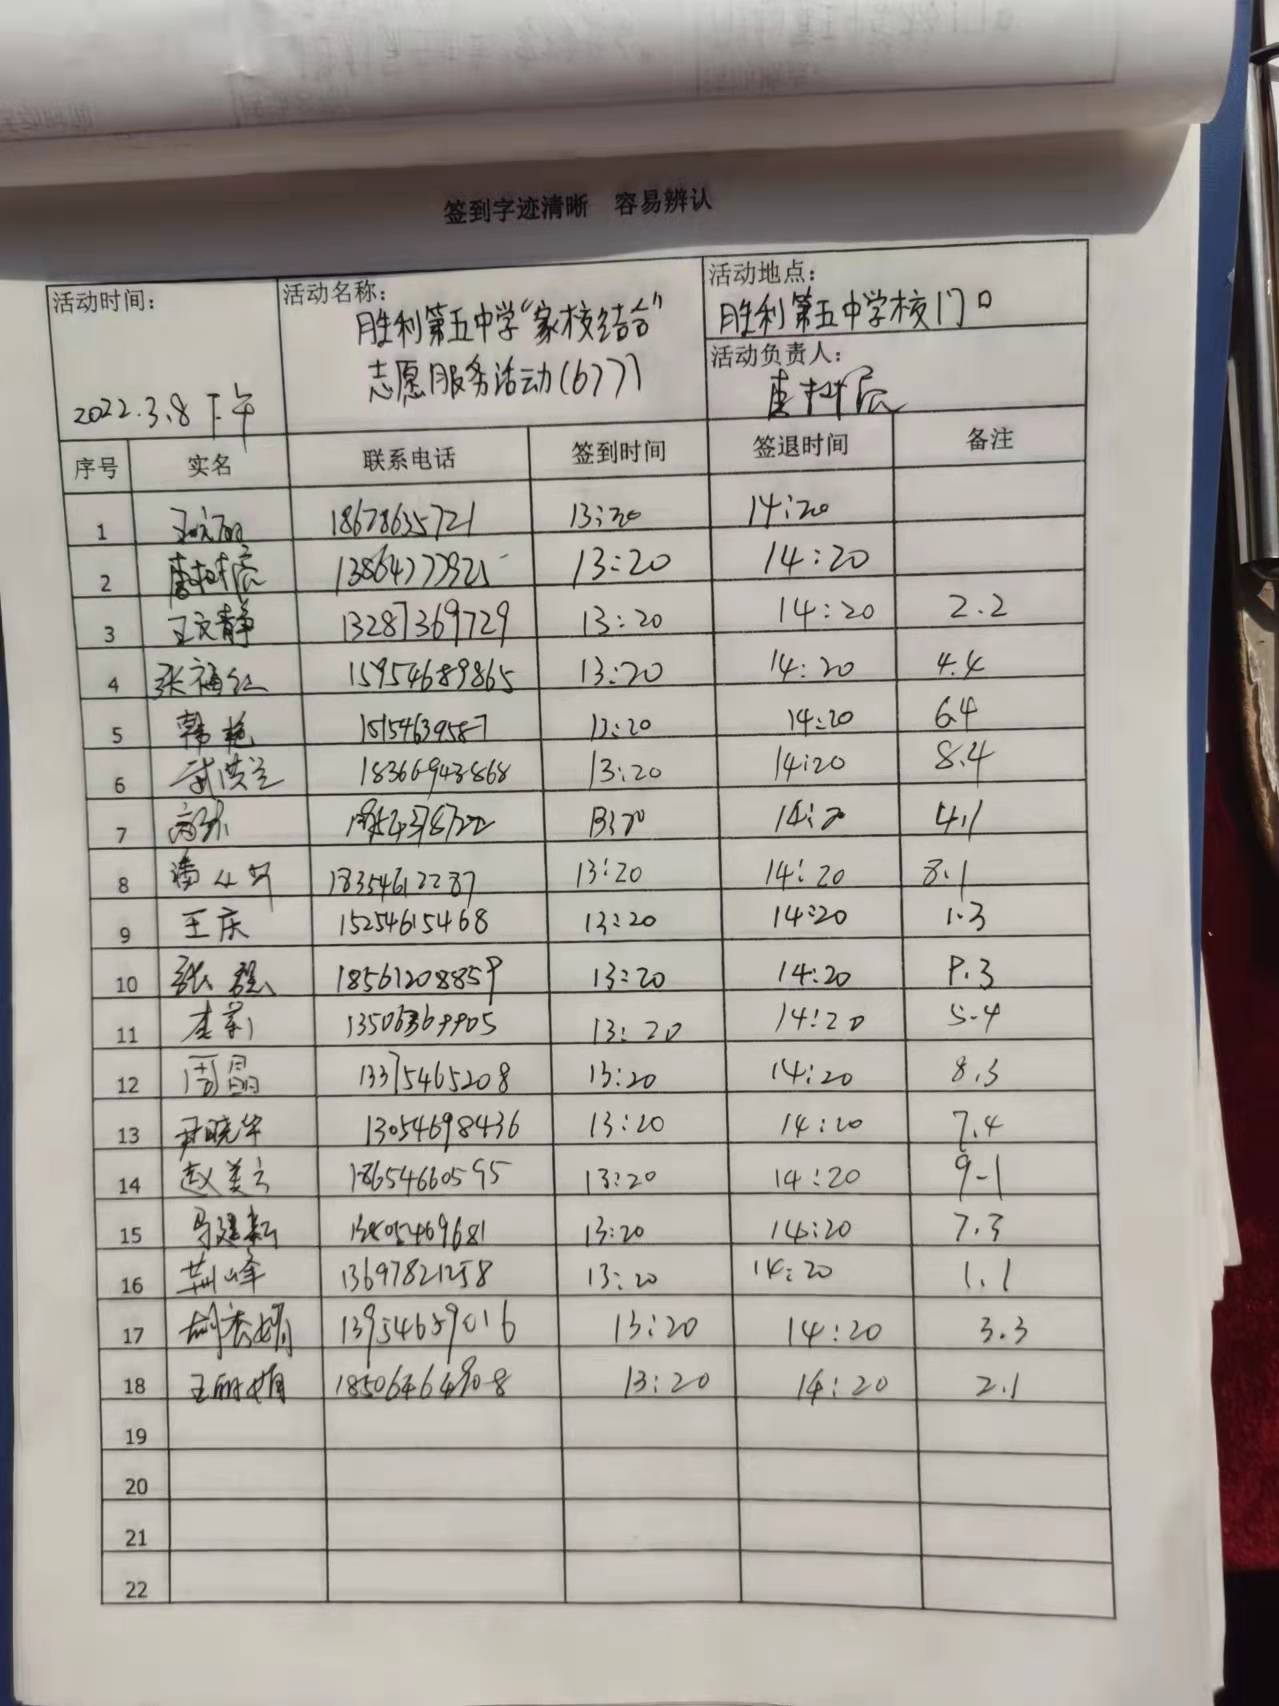 签到字迹清晰 容易辨认
活动时间：
2022.3.8 下午
活动名称：
胜利第五中学“家校结合”
志愿服务活动(677)
活动地点：
胜利第五中学校门口
活动负责人：
序号 实名 联系电话 签到时间 签退时间 备注
1 18678635721 13:20 14:20
2 13:20 14:20
3 王文静 13287369729 13:20 14:20 2.2
4 张福红 15954689865 13:20 14:20 4.4
5 韩艳 15154639587 13:20 14:20 6.4
6 武洪兰 18366943868 13:20 14:20 8.4
7 13:20 14:20 4.1
8 18354612287 13:20 14:20 8.1
9 王庆 15254615468 13:20 14:20 1.3
10 张磊 18561208859 13:20 14:20 9.3
11 李莉 13:20 14:20 5.4
12 周晶 13375465208 13:20 14:20 8.3
13 尹晓华 13054698436 13:20 14:20 7.4
14 赵美云 18654660595 13:20 14:20 9-1
15 13805469681 13:20 14:20 7.3
16 荆峰 13697821258 13:20 14:20 1.1
17 胡秀娟 13954659016 13:20 14:20 3.3
18 王丽娟 18506464908 13:20 14:20 2.1
19
20
21
22